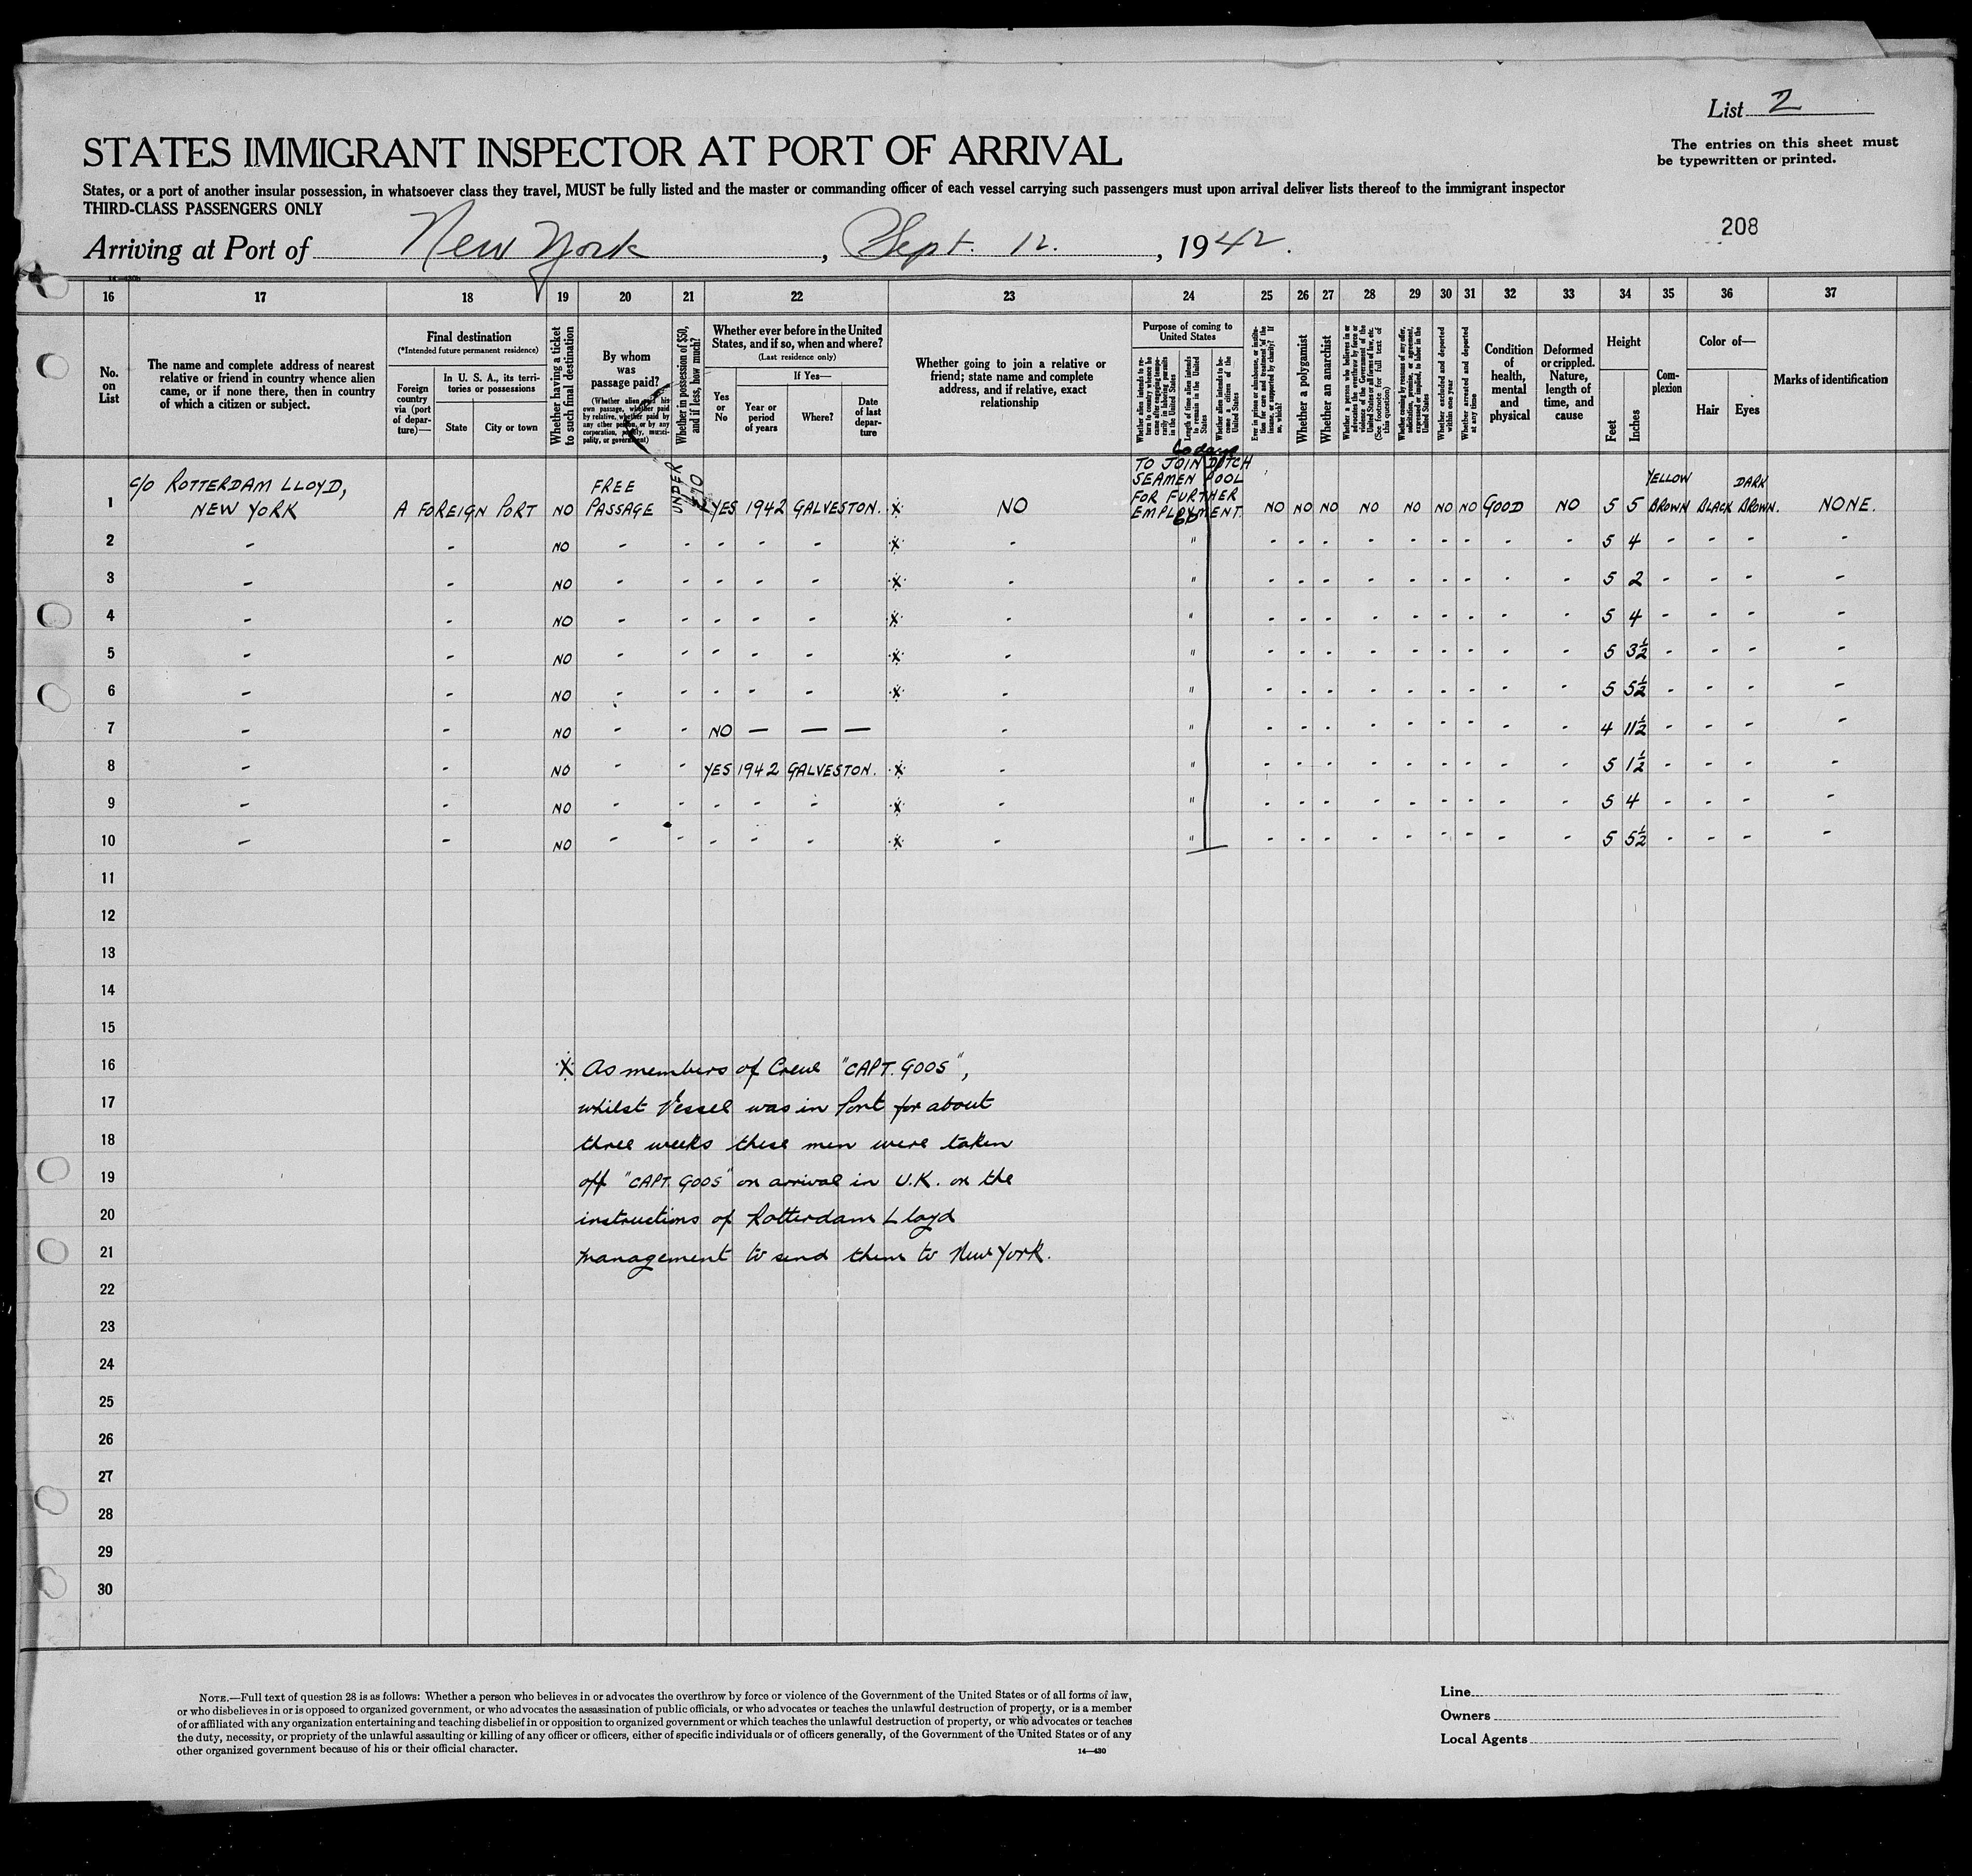 List 2
STATES IMMIGRANT INSPECTOR AT PORT OF ARRIVAL
The entries on this sheet must
be typewritten or printed.
States, or a port of another insular possession, in whatsoever class they travel, MUST be fully listed and the master or commanding officer of each vessel carrying such passengers must upon arrival deliver lists thereof to the immigrant inspector
THIRD-CLASS PASSENGERS ONLY
208
Arriving at Port of New York, Sept. 12., 1942.
16 17 18 19 20 21 22 23 24 25 26 27 28 29 30 31 32 33 34 35 36 37
No.
on
List
The name and complete address of nearest
relative or friend in country whence alien
came, or if none there, then in country
of which a citizen or subject.
Final destination
(*Intended future permanent residence)
Foreign
country
via (port
of depar-
ture)—
In U. S. A., its terri-
tories or possessions
State
City or town
Whether having a ticket
to such final destination
By whom
was
passage paid?
(Whether alien paid his
own passage, whether paid
by relative, whether paid by
any other person, or by any
corporation, society, munici-
pality, or government)
Whether in possession of $50,
and if less, how much?
Whether ever before in the United
States, and if so, when and where?
(Last residence only)
Yes
or
No
If Yes—
Year or
period
of years
Where?
Date
of last
depar-
ture
Whether going to join a relative or
friend; state name and complete
address, and if relative, exact
relationship
Purpose of coming to
United States
Whether alien intends to re-
turn to country whence he
came after engaging tempo-
rarily in laboring pursuits
in the United States
Length of time alien intends
to remain in the United
States
Whether alien intends to be-
come a citizen of the
United States
Ever in prison or almshouse, or institu-
tion for care and treatment of the
insane, or supported by charity? If
so, which?
Whether a polygamist
Whether an anarchist
Whether a person who believes in or
advocates the overthrow by force or
violence of the Government of the
United States or all forms of law, etc.
(See footnote for full text of
this question)
Whether coming by reason of any offer,
solicitation, promise, or agreement,
expressed or implied, to labor in the
United States
Whether excluded and deported
within one year
Whether arrested and deported
at any time
Condition
of
health,
mental
and
physical
Deformed
or crippled.
Nature,
length of
time, and
cause
Height
Feet
Inches
Com-
plexion
Color of—
Hair
Eyes
Marks of identification
60 days
TO JOIN DUTCH
SEAMEN POOL
FOR FURTHER
EMPLOYMENT.
c/o ROTTERDAM LLOYD,
NEW YORK
FREE
PASSAGE
UNDER
1 A FOREIGN PORT NO YES 1942 GALVESTON. X NO NO NO NO NO NO NO NO GOOD NO 5 5 YELLOW BROWN BLACK DARK BROWN. NONE.
2 - - NO - - - - - X - " - - - - - - - - - 5 4 - - - -
3 - - NO - - - - - X - " - - - - - - - - - 5 2 - - - -
4 - - NO - - - - - X - " - - - - - - - - - 5 4 - - - -
5 - - NO - - - - - X - " - - - - - - - - - 5 3½ - - - -
6 - - NO - - - - - X - " - - - - - - - - - 5 5½ - - - -
7 - - NO - - NO — — — - " - - - - - - - - - 4 11½ - - - -
8 - - NO - - YES 1942 GALVESTON. X - " - - - - - - - - - 5 1½ - - - -
9 - - NO - - - - - X - " - - - - - - - - - 5 4 - - - -
10 - - NO - - - - - X - " - - - - - - - - - 5 5½ - - - -
11
12
13
14
15
16 X As members of Crew "CAPT. GOOS",
17 whilst Vessel was in Port for about
18 three weeks these men were taken
19 off "CAPT. GOOS" on arrival in U.K. on the
20 instructions of Rotterdam Lloyd
21 management to send them to New York.
22
23
24
25
26
27
28
29
30
NOTE.—Full text of question 28 is as follows: Whether a person who believes in or advocates the overthrow by force or violence of the Government of the United States or of all forms of law,
or who disbelieves in or is opposed to organized government, or who advocates the assassination of public officials, or who advocates or teaches the unlawful destruction of property, or is a member
of or affiliated with any organization entertaining and teaching disbelief in or opposition to organized government or which teaches the unlawful destruction of property, or who advocates or teaches
the duty, necessity, or propriety of the unlawful assaulting or killing of any officer or officers, either of specific individuals or of officers generally, of the Government of the United States or of any
other organized government because of his or their official character.
14—430
Line
Owners
Local Agents